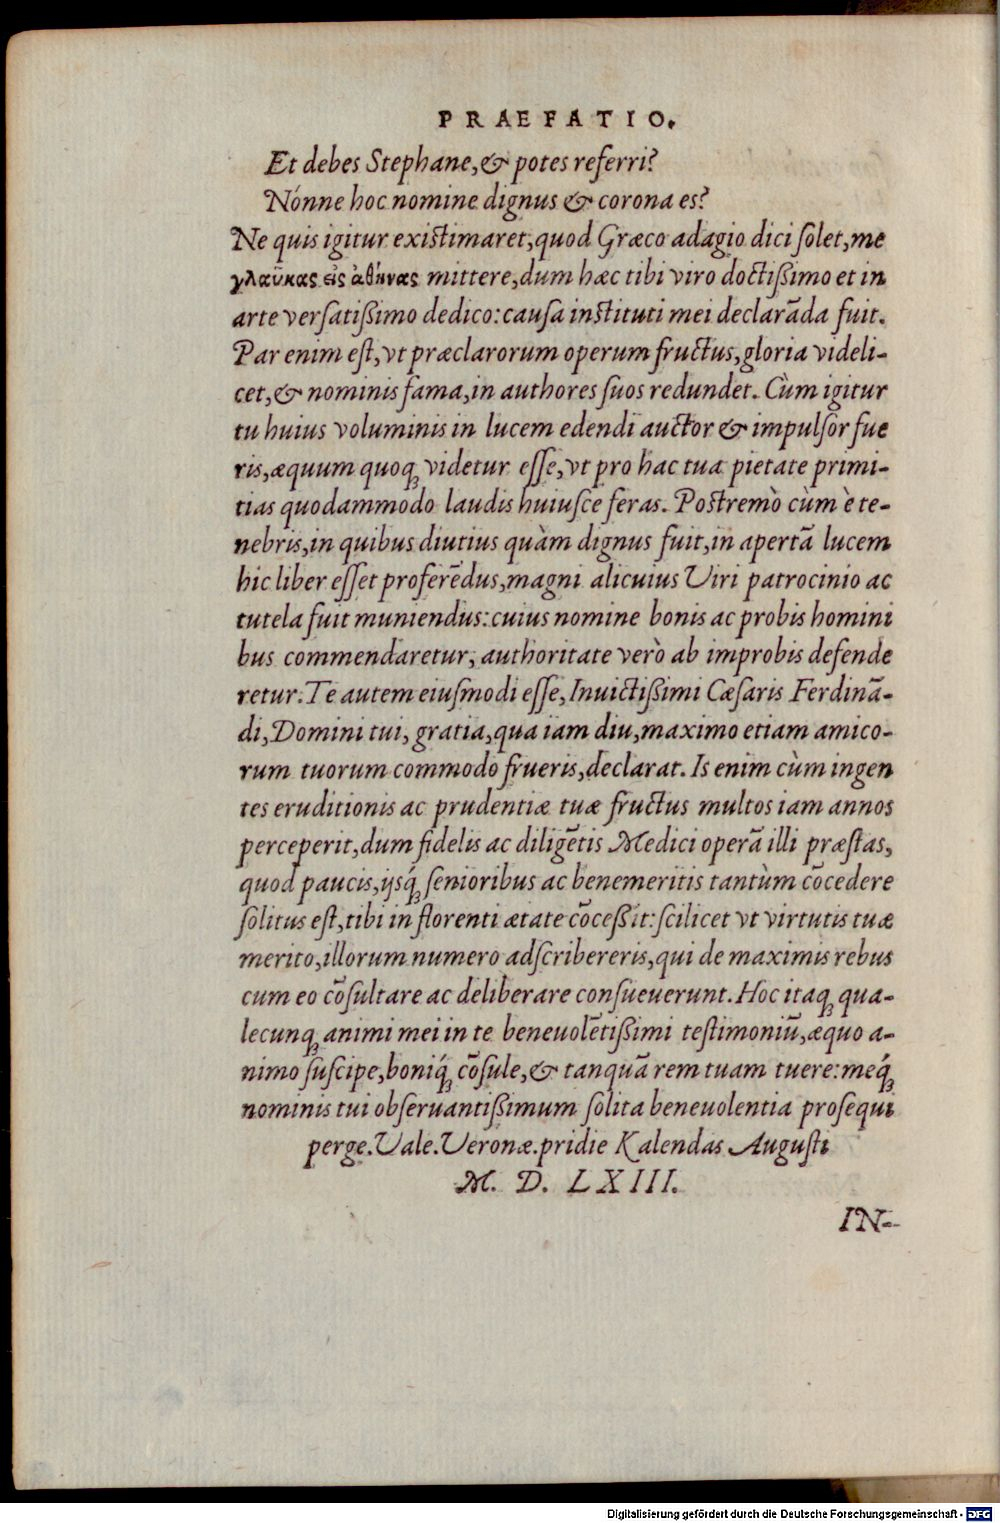 PRAEFATIO.
Et debes Stephane, & potes referri?
Nónne hoc nomine dignus & corona es?
Ne quis igitur existimaret, quod Græco adagio dici ſolet, me
γλαῦκας εἰς ἀθήνας mittere, dum hæc tibi viro doctißimo et in
arte verſatißimo dedico: cauſa instituti mei declarãda fuit.
Par enim eſt, vt præclarorum operum fructus, gloria videli-
cet, & nominis fama, in authores ſuos redundet. Cùm igitur
tu huius voluminis in lucem edendi auctor & impulſor fue
ris, æquum quoq; videtur eſſe, vt pro hac tua pietate primi-
tias quodammodo laudis huiuſce feras. Postremò cùm è te-
nebris, in quibus diutius quàm dignus fuit, in apertã lucem
hic liber eſſet proferẽdus, magni alicuius Viri patrocinio ac
tutela fuit muniendus: cuius nomine bonis ac probis homini
bus commendaretur, authoritate verò ab improbis defende
retur. Te autem eiuſmodi eſſe, Inuictißimi Cæſaris Ferdinã-
di, Domini tui, gratia, qua iam diu, maximo etiam amico-
rum tuorum commodo frueris, declarat. Is enim cùm ingen
tes eruditionis ac prudentiæ tuæ fructus multos iam annos
perceperit, dum fidelis ac diligẽtis Medici operã illi præſtas,
quod paucis, ijsq́; ſenioribus ac benemeritis tantùm cõcedere
ſolitus eſt, tibi in florenti ætate cõceßit: ſcilicet vt virtutis tuæ
merito, illorum numero adſcribereris, qui de maximis rebus
cum eo cõſultare ac deliberare conſueuerunt. Hoc itaq; qua-
lecunq; animi mei in te beneuolẽtißimi teſtimoniũ, æquo a-
nimo ſuſcipe, boniq́; cõſule, & tanquã rem tuam tuere: meq́;
nominis tui obſeruantißimum ſolita beneuolentia proſequi
perge. Vale. Veronæ. pridie Kalendas Auguſti
M. D. LXIII.
IN-
Digitalisierung gefördert durch die Deutsche Forschungsgemeinschaft - DFG